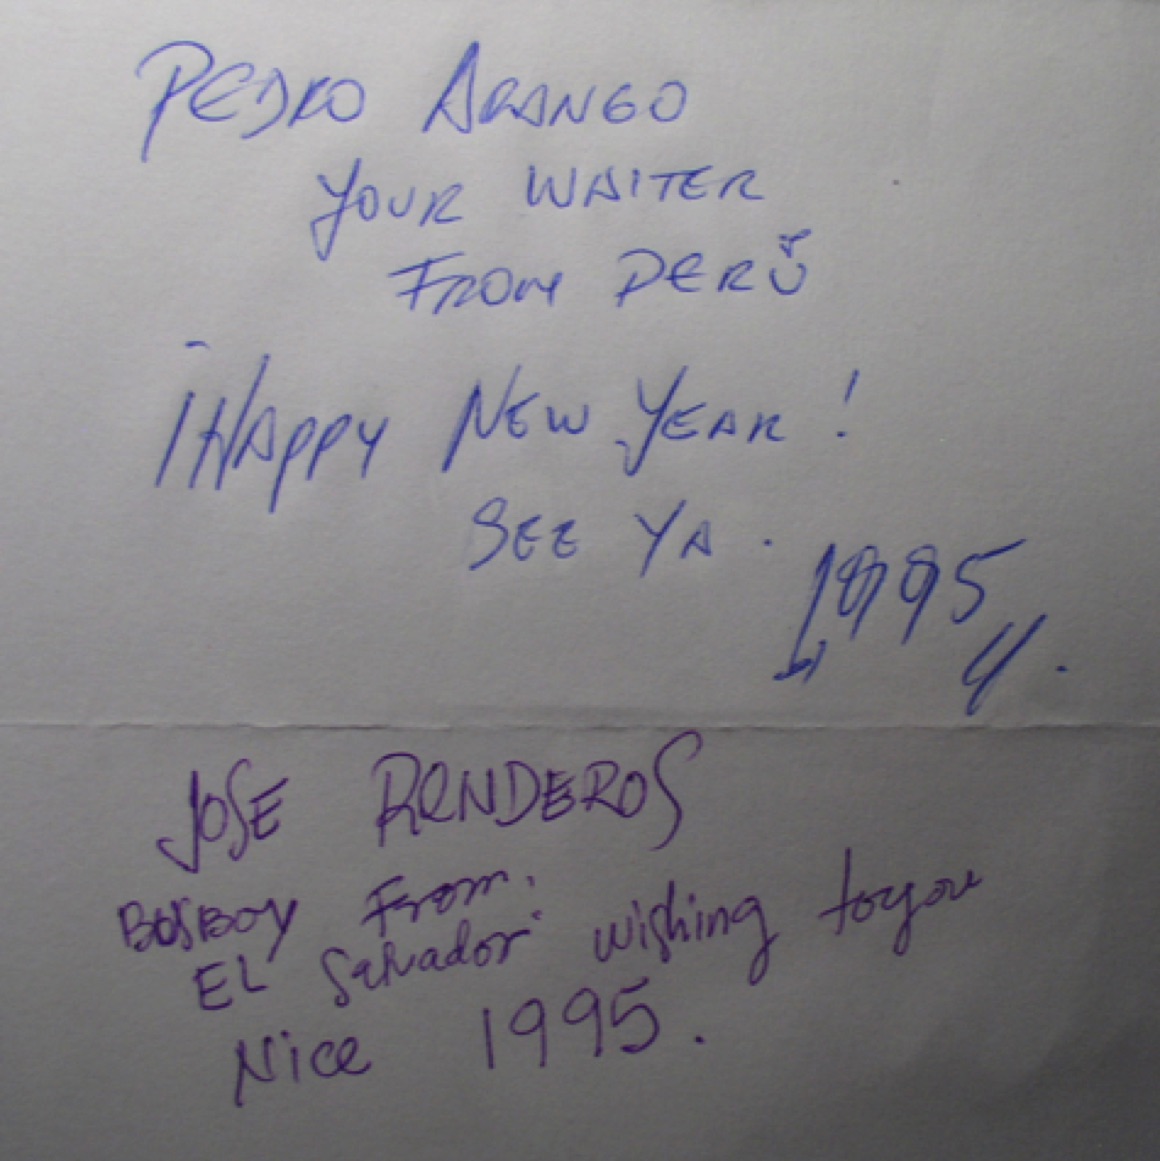 PEDRO ARANGO
YOUR WAITER
FROM PERÚ
¡HAPPY NEW YEAR!
SEE YA.
1995
JOSE RENDEROS
BOSBOY From.
EL Salvador wishing to you
Nice 1995.